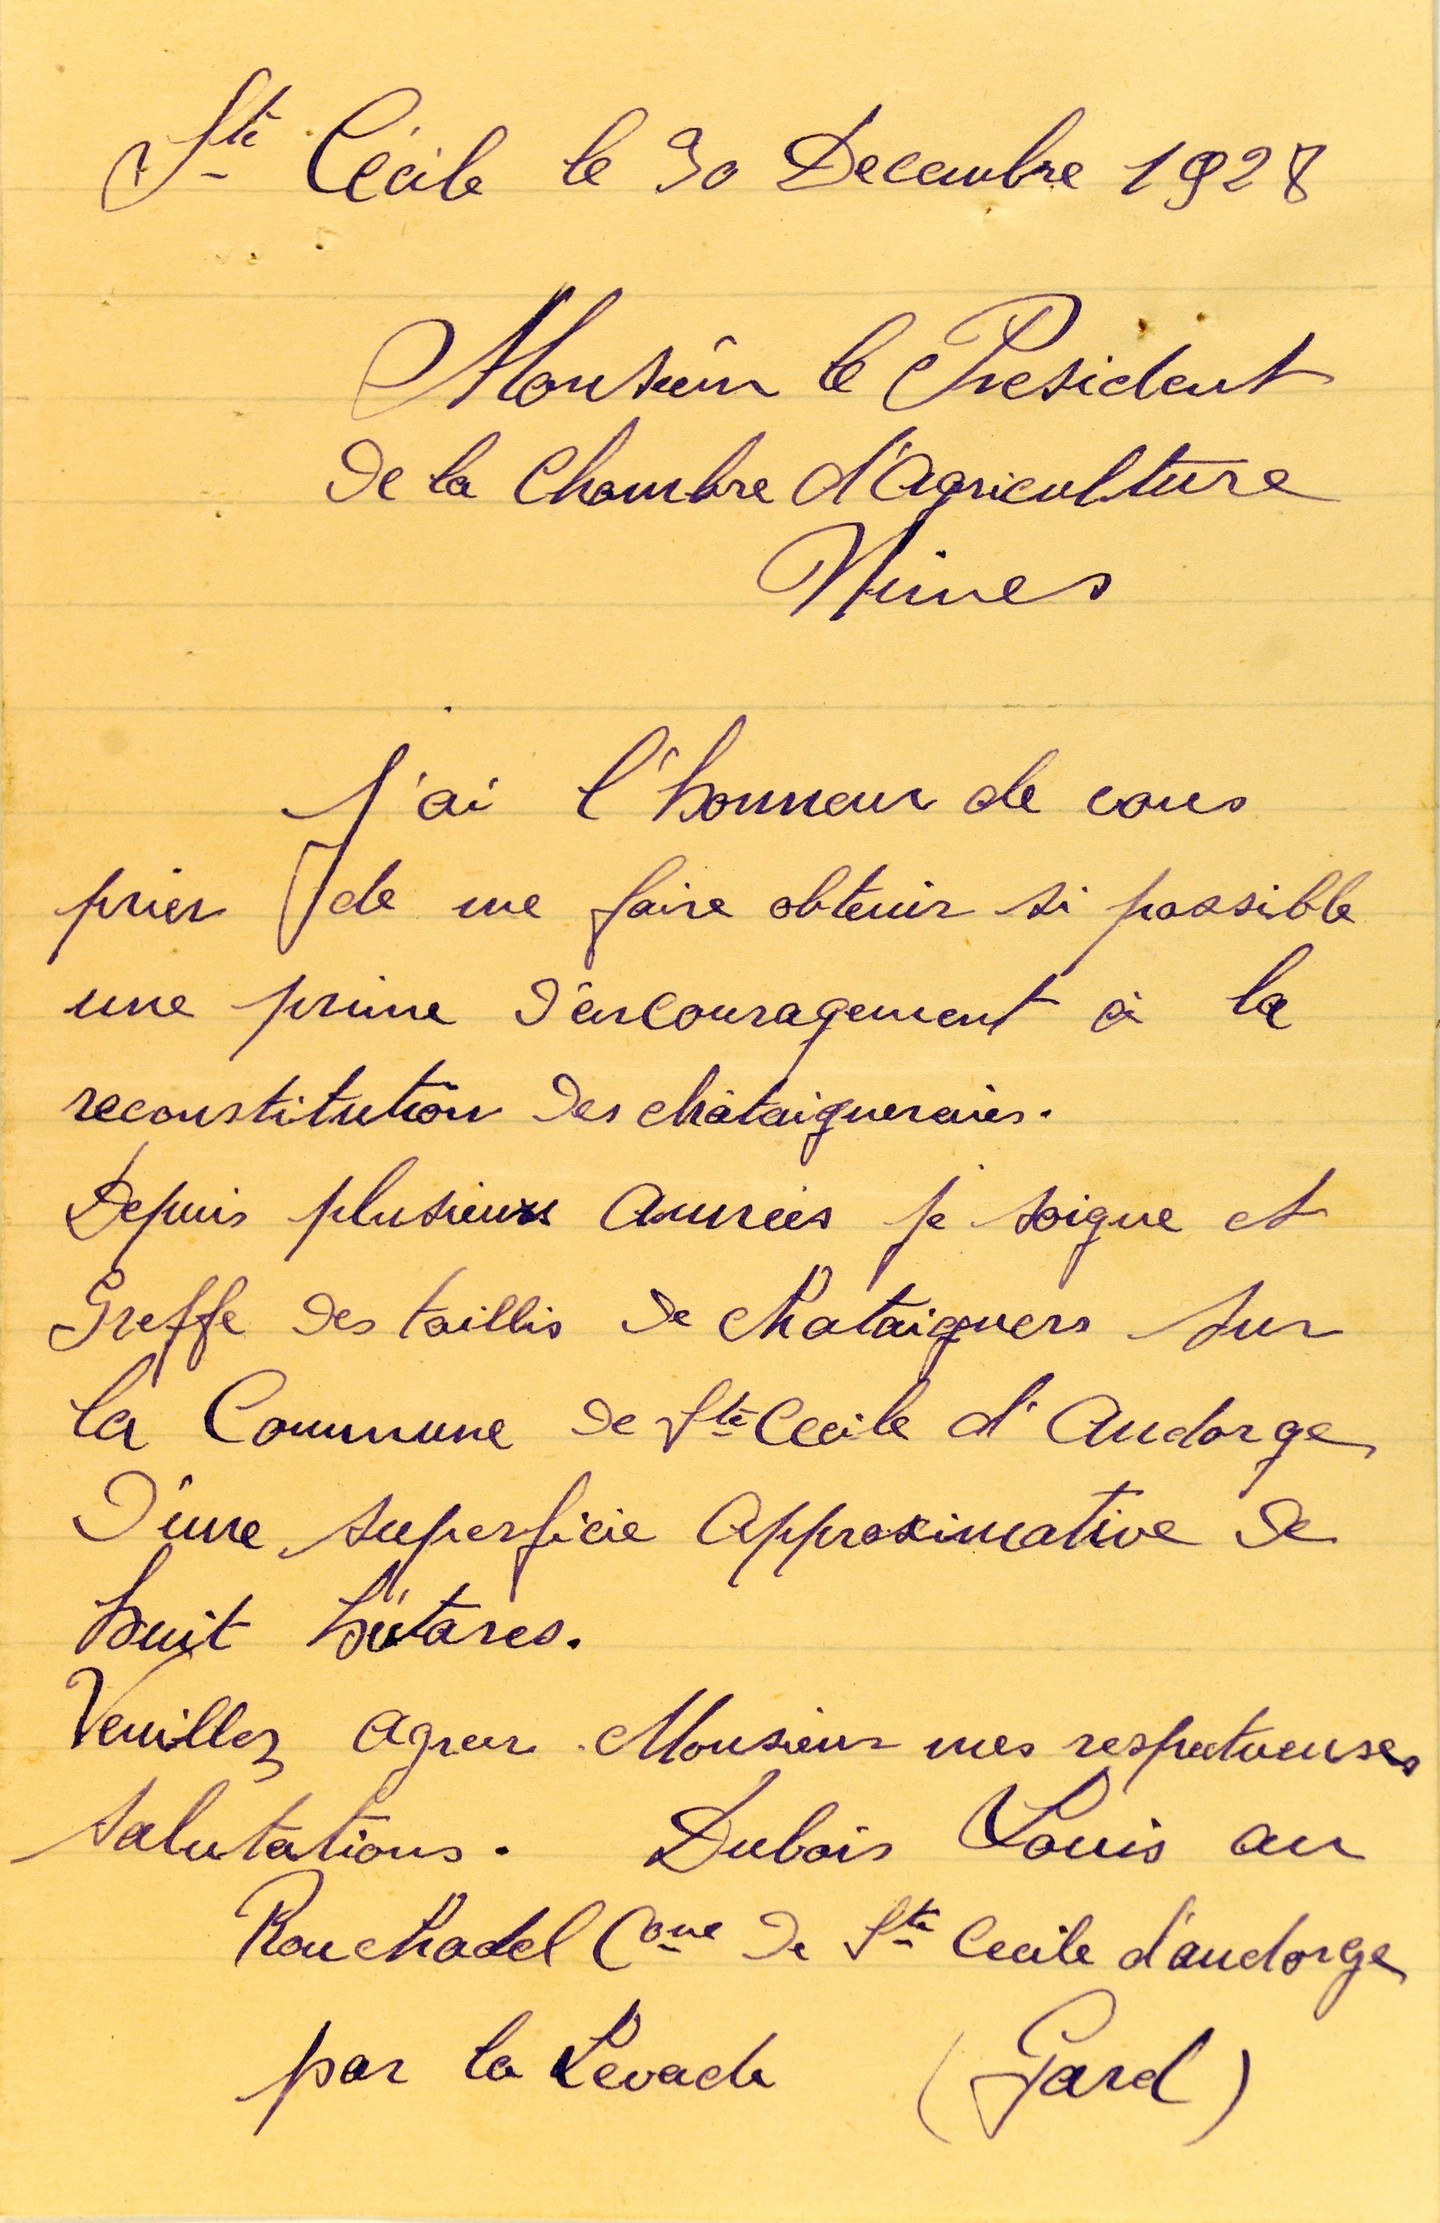 Ste Cécile le 30 Decembre 1928
Monsieur le President
De la Chambre d'Agriculture
Nimes
J'ai l'honneur de vous
prier de me faire obtenir si possible
une prime d'encouragement à la
reconstitution des châtaigneraies.
Depuis plusieurs années je soigne et
Greffe des taillis de chataigners sur
la Commune de Ste Cecile d'Andorge
D'une superficie Approximative de
huit hectares.
Veuillez agreer Monsieur mes respectueuses
salutations. Dubois Louis au
Rouchadel Cone de Ste Cecile d'andorge
par la Levade (Gard)